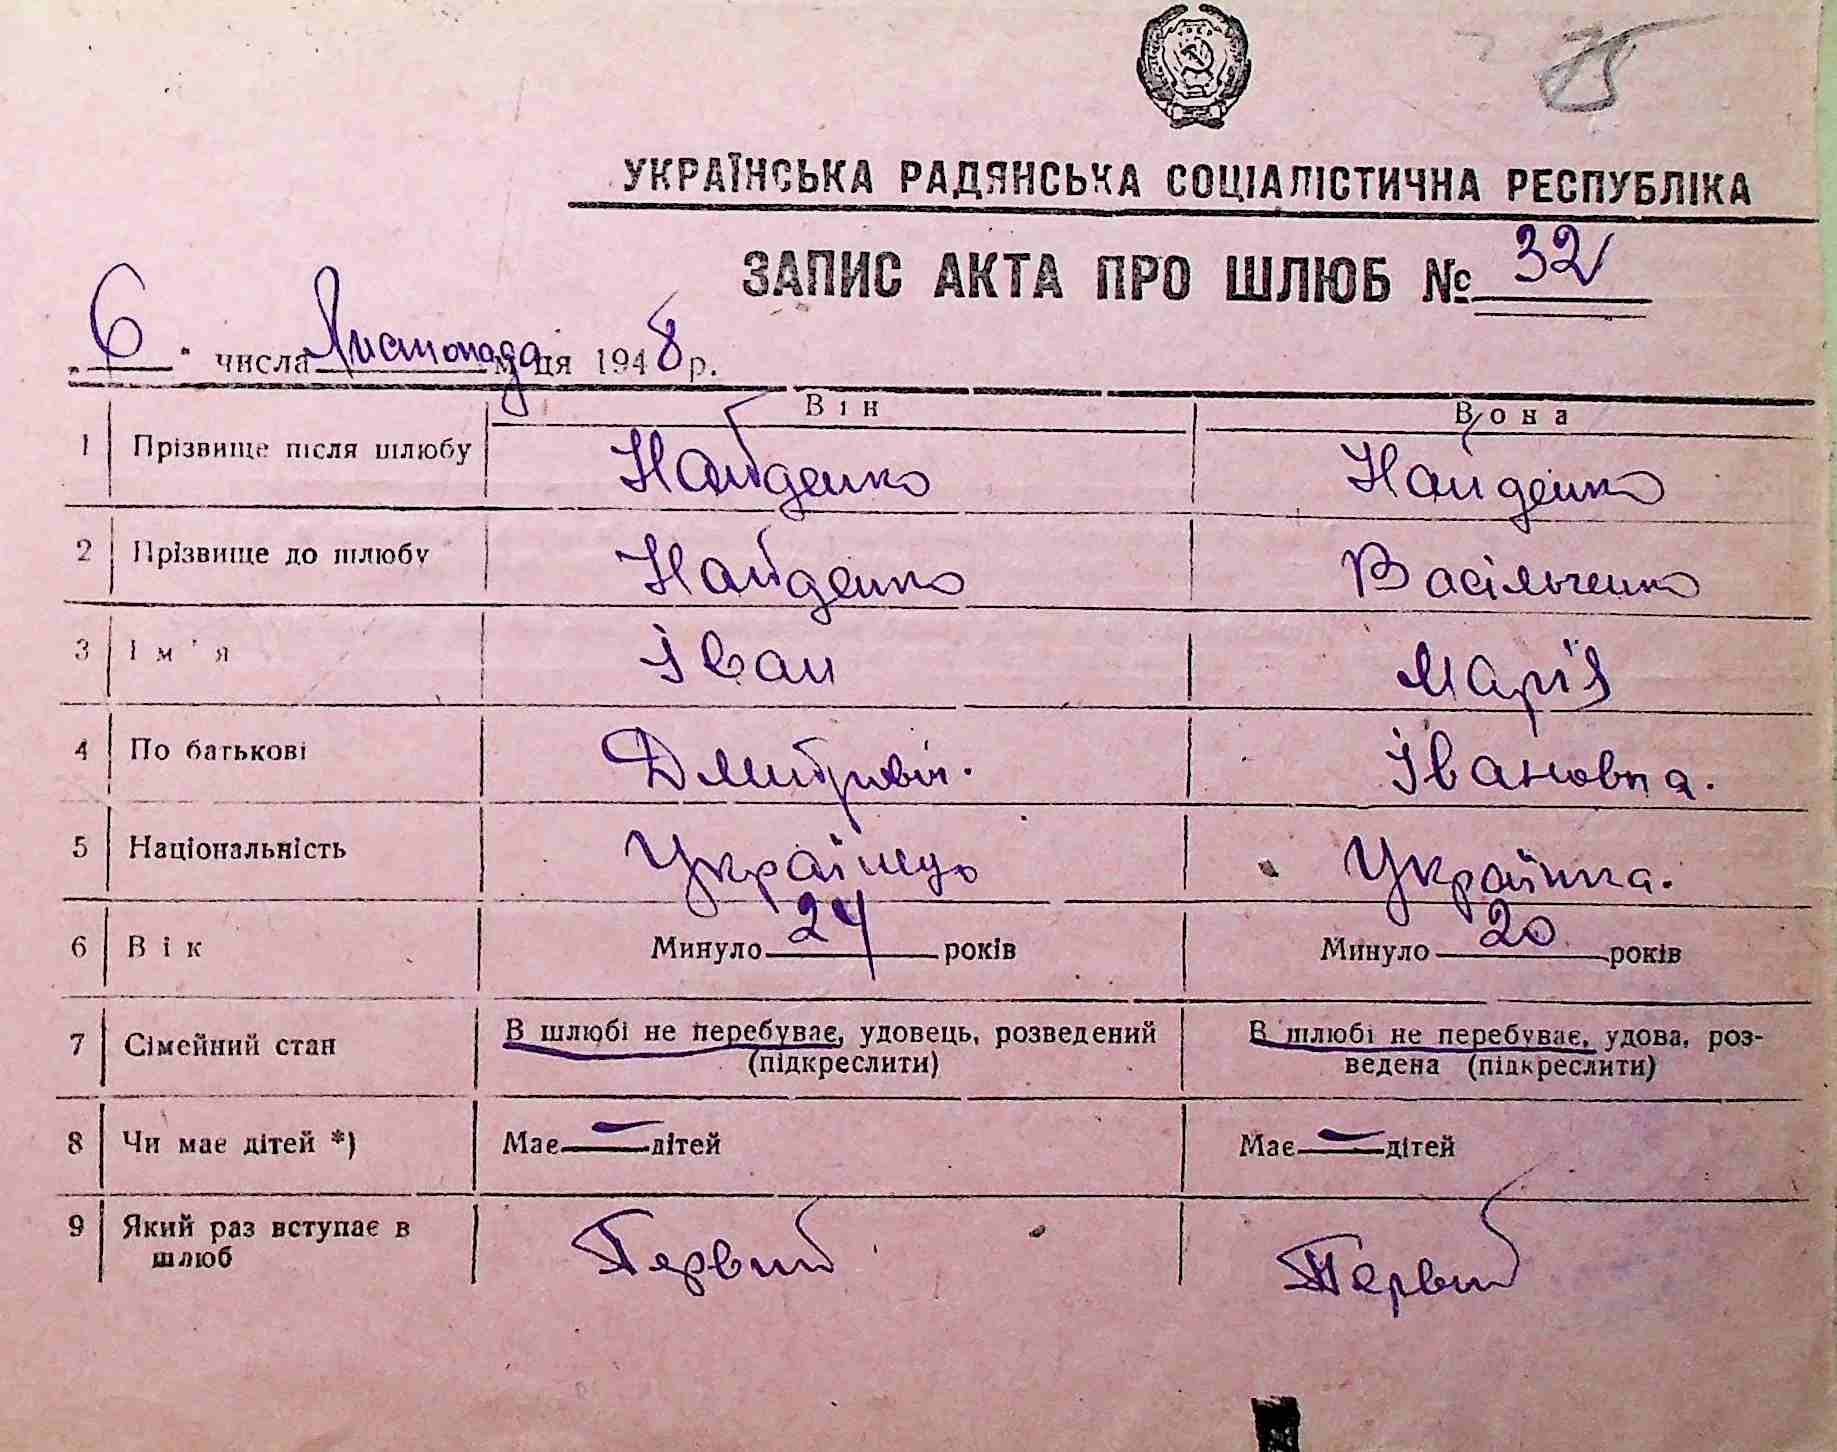 75
УКРАЇНСЬКА РАДЯНСЬКА СОЦІАЛІСТИЧНА РЕСПУБЛІКА
ЗАПИС АКТА ПРО ШЛЮБ № 32
„6" числа Листопада м-ця 1948 р.
Він Вона
1 Прізвище після шлюбу Найденко Найденко
2 Прізвище до шлюбу Найденко Васільченко
3 Ім'я Іван Марія
4 По батькові Дмитровіч. Івановна.
5 Національність Українець Українка.
6 Вік Минуло 24 років Минуло 20 років
7 Сімейний стан В шлюбі не перебуває, удовець, розведений (підкреслити) В шлюбі не перебуває, удова, роз-
ведена (підкреслити)
8 Чи має дітей *) Має — дітей Має — дітей
9 Який раз вступає в шлюб Первий Первий